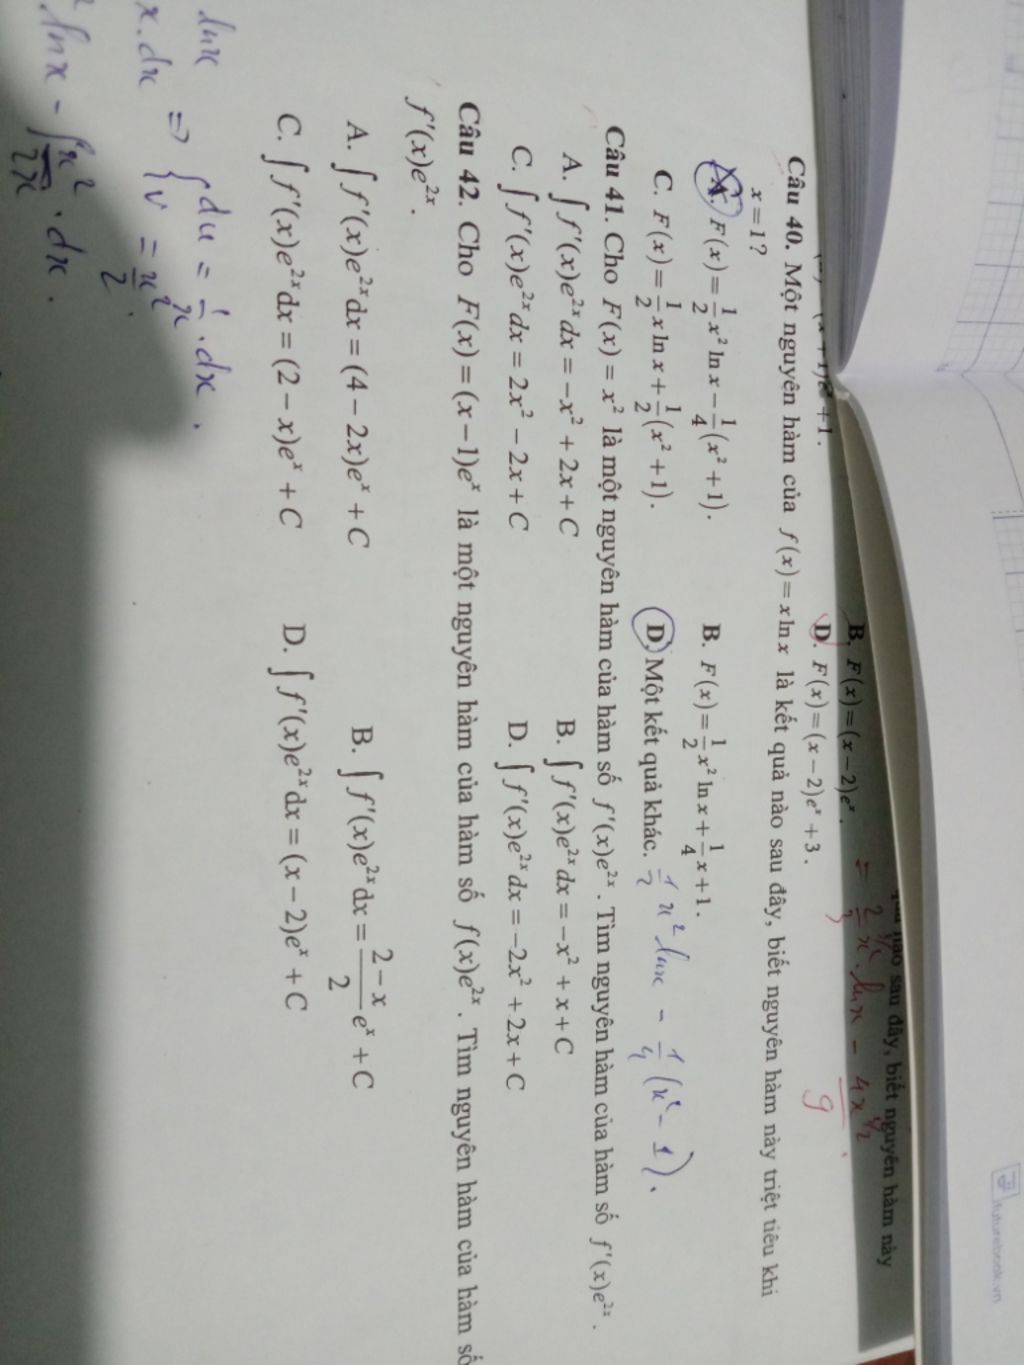 quả nào sau đây, biết nguyên hàm này
B. F(x) = (x − 2)eˣ.
+ 1.
D. F(x) = (x − 2)eˣ + 3.
Câu 40. Một nguyên hàm của f(x) = x ln x là kết quả nào sau đây, biết nguyên hàm này triệt tiêu khi
x = 1?
A. F(x) = 1/2 x² ln x − 1/4 (x² + 1). B. F(x) = 1/2 x² ln x + 1/4 x + 1.
C. F(x) = 1/2 x ln x + 1/2 (x² + 1). D. Một kết quả khác. 1/2 x² lnx − 1/4 (x² − 1).
Câu 41. Cho F(x) = x² là một nguyên hàm của hàm số f'(x)e²ˣ. Tìm nguyên hàm của hàm số f'(x)e²ˣ.
A. ∫ f'(x)e²ˣdx = −x² + 2x + C B. ∫ f'(x)e²ˣdx = −x² + x + C
C. ∫ f'(x)e²ˣdx = 2x² − 2x + C D. ∫ f'(x)e²ˣdx = −2x² + 2x + C
Câu 42. Cho F(x) = (x − 1)eˣ là một nguyên hàm của hàm số f(x)e²ˣ. Tìm nguyên hàm của hàm số
f'(x)e²ˣ.
A. ∫ f'(x)e²ˣdx = (4 − 2x)eˣ + C B. ∫ f'(x)e²ˣdx = (2 − x)/2 eˣ + C
C. ∫ f'(x)e²ˣdx = (2 − x)eˣ + C D. ∫ f'(x)e²ˣdx = (x − 2)eˣ + C
lnx ⇒ { du = 1/x . dx.
x.dx v = x²/2.
lnx − ∫ x²/2x . dx.